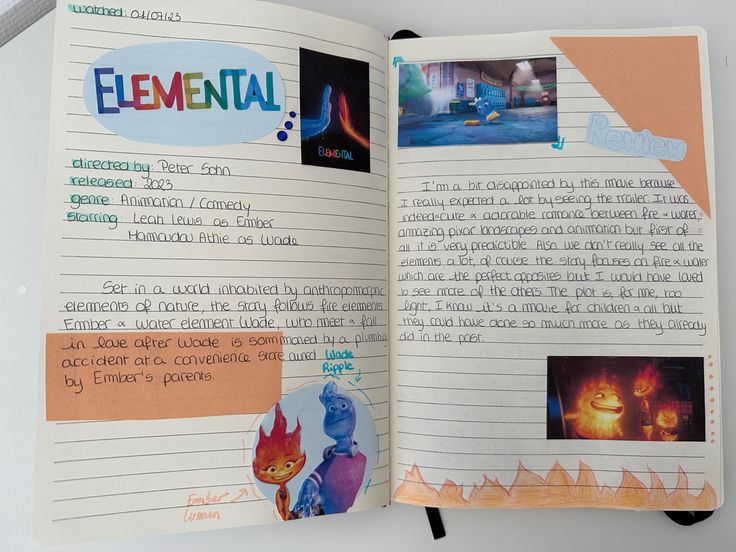 watched: 01/07/23
ELEMENTAL
ELEMENTAL
directed by: Peter Sohn
released: 2023
genre: Animation / Comedy
starring: Leah Lewis as Ember
Mamouda Athie as Wade
Set in a world inhabited by anthropomorphic
elements of nature, the story follows fire elements
Ember & water element Wade, who meet & fall
in love after Wade is sommoned by a plumbing
accident at a convenience store owned
by Ember's parents.
Wade
Ripple
Ember
Lumen
Review
I'm a bit disappointed by this movie because
I really expected a lot by seeing the trailer. It was
indeed cute & adorable romance between fire & water,
amazing pixar landscapes and animation but first of
all it is very predictible. Also we don't really see all the
elements a lot, of course the story focuses on fire & water
which are the perfect opposites but I would have loved
to see more of the others. The plot is, for me, too
light, I know it's a movie for children & all but
they could have done so much more as they already
did in the past.